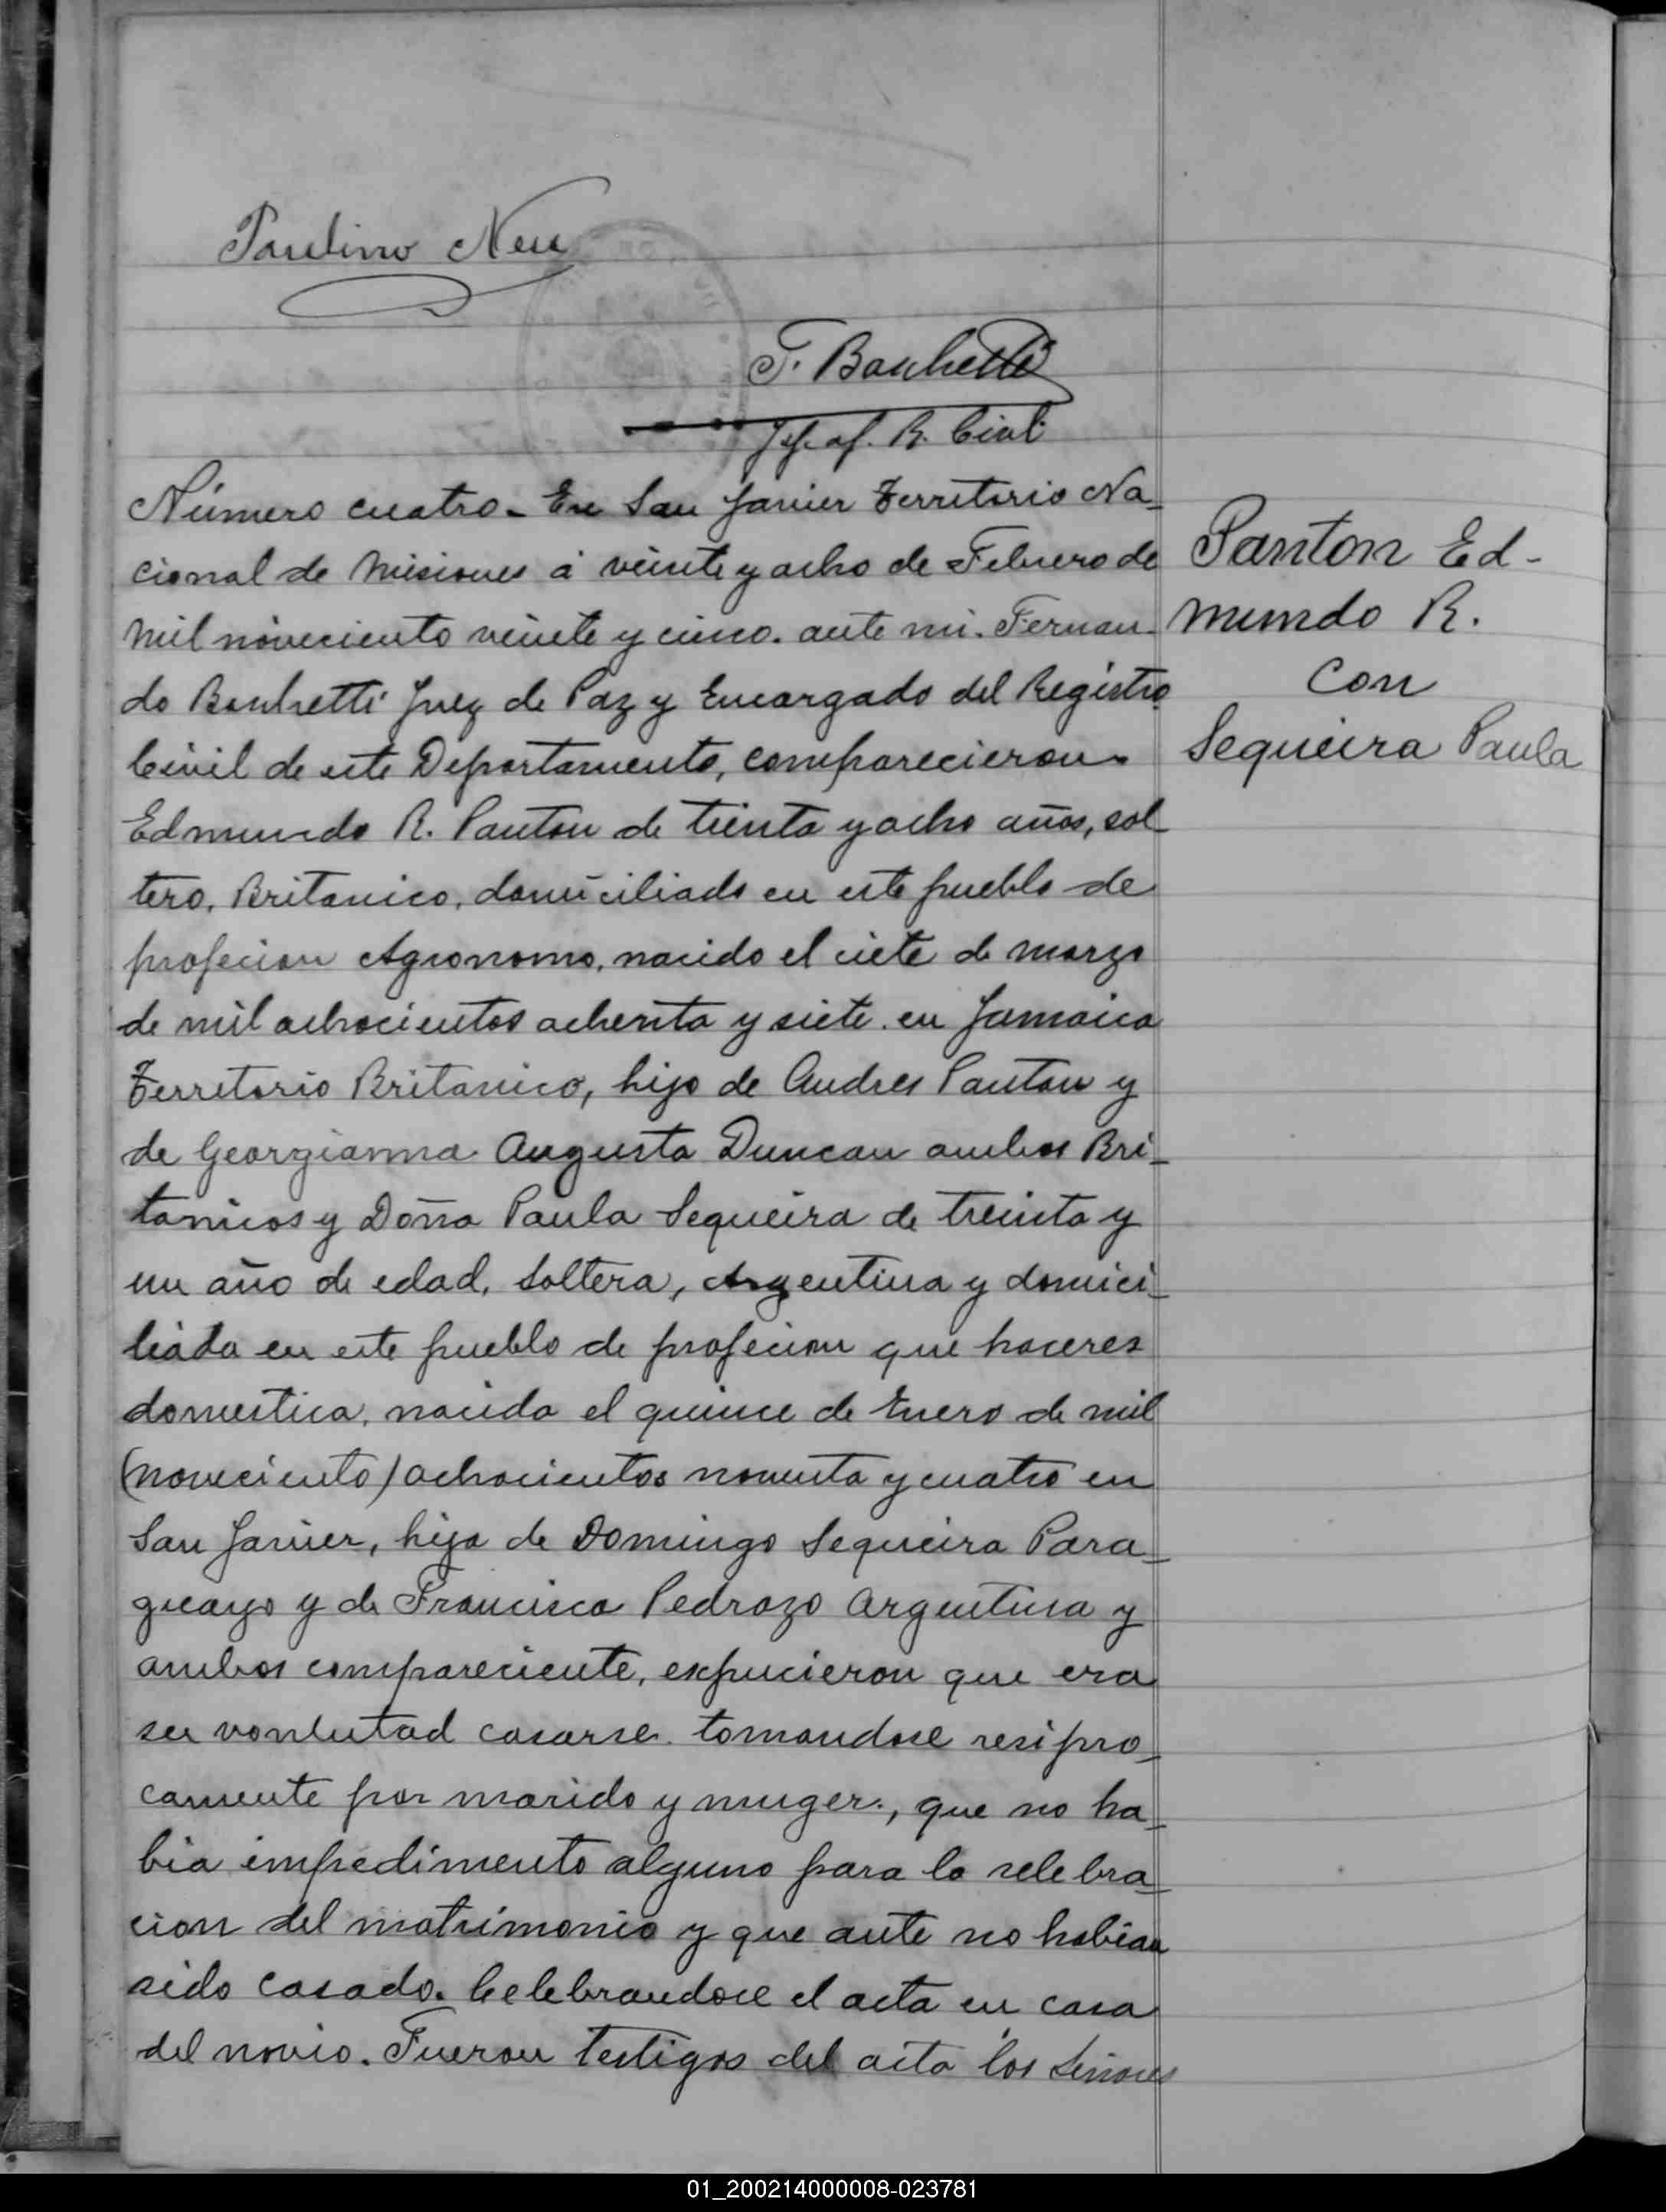 Paulino Neu
F. Banchetti
Jefe of. R. Civil
Número cuatro. En San Javier Territorio Na-
cional de Misiones á veinte y ocho de Febrero de
mil noveciento veinte y cinco. ante mi. Fernan-
do Banchetti Juez de Paz y Encargado del Registro
Civil de este Departamento, comparecieron.
Edmundo R. Panton de trienta y ocho años, sol-
tero, Britanico, domiciliado en este pueblo de
profecion Agronomo, nacido el ciete de marzo
de mil achocientos achenta y siete. en Jamaica
Territorio Britanico, hijo de Andres Panton y
de Georgianna Augusta Duncan ambos Bri-
tanicos y Doña Paula Sequeira de treinta y
un año de edad, soltera, Argentina y domici-
liada en este pueblo de profecion que haceres
domestica, nacida el quince de Enero de mil
(noveciento) achocientos noventa y cuatro en
San Javier, hija de Domingo Sequeira Para-
guayo y de Francisca Pedrozo Argentina y
ambos compareciente, expucieron que era
su vonlutad casarse. tomandose resipro-
camente por marido y muger., que no ha-
bia impedimento alguno para la selebra-
cion del matrimonio y que ante no habian
sido casado. Celebrandose el acta en casa
del novio. Fueron testigos del acta los Señores
Panton Ed-
mundo R.
con
Sequeira Paula
01_200214000008-023781